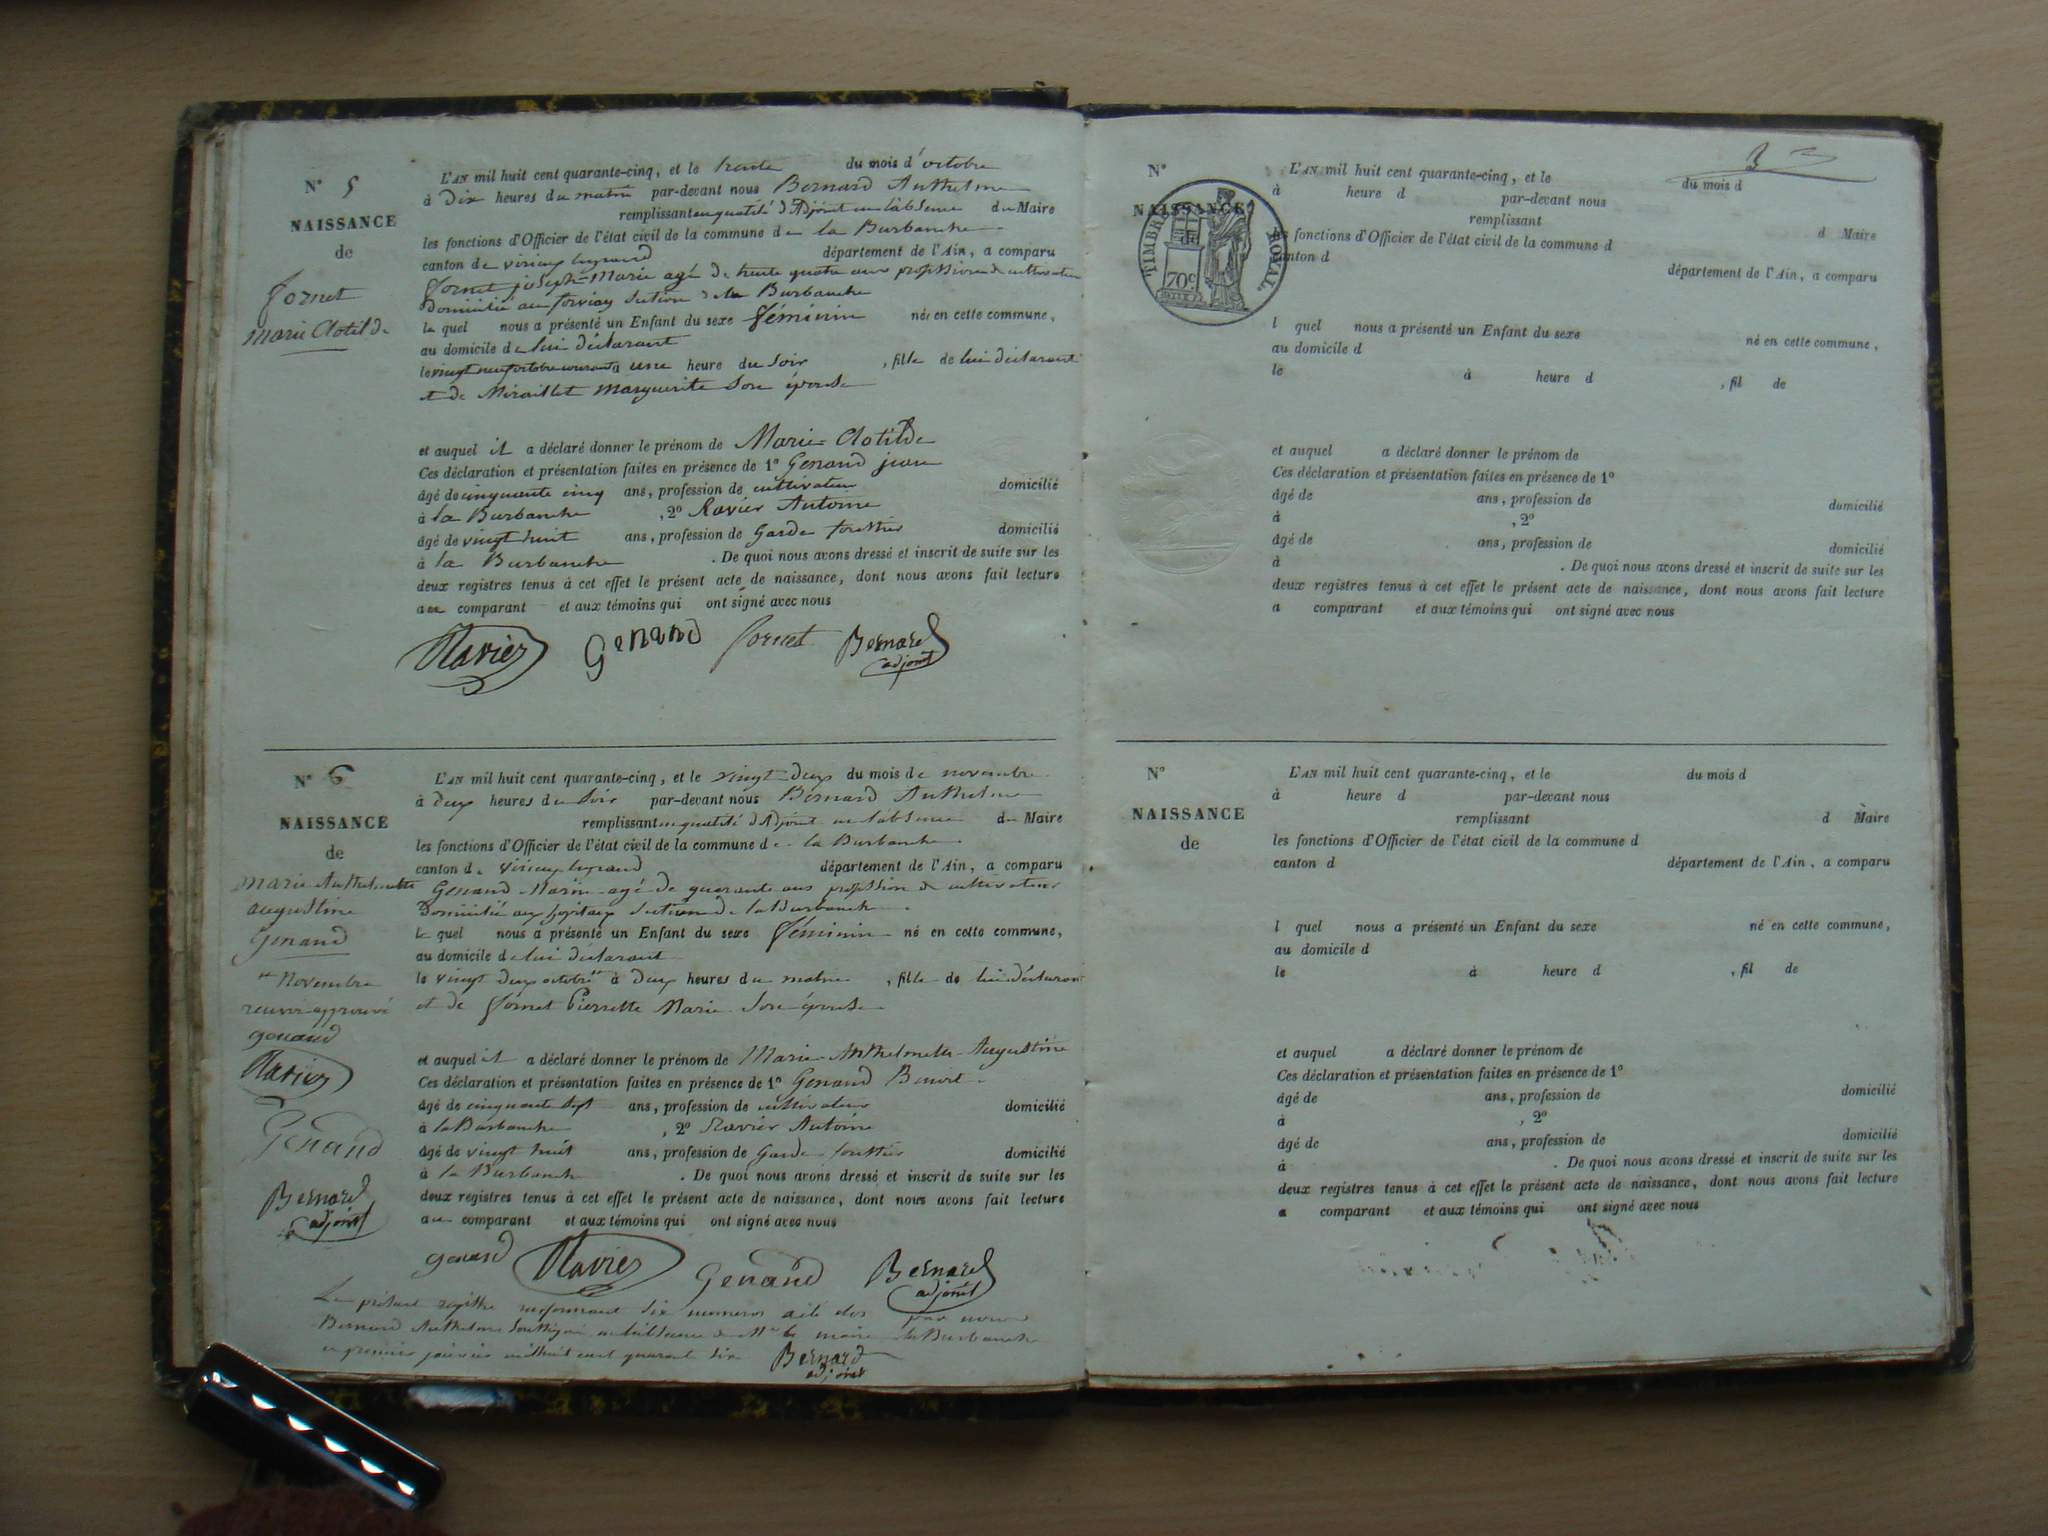 N° 5
NAISSANCE
de
fornet
marie Clotilde
L'AN mil huit cent quarante-cinq, et le trente du mois d'octobre
à Dix heures du matin par-devant nous Bernard Anthelme
remplissant en qualité d'Adjoint en l'absence du Maire
les fonctions d'Officier de l'état civil de la commune de la Burbanche
canton de virieu legrand département de l'Ain, a comparu
fornet joseph-Marie agé de trente quatre ans profession de cultivateur
Domicilié au section de la Burbanche
le quel nous a présenté un Enfant du sexe féminin née en cette commune,
au domicile de lui déclarant
le vingt neuf octobre courant à une heure du Soir, fille de lui déclarant
et de Miraillet Marguerite Son épouse
et auquel il a déclaré donner le prénom de Marie-Clotilde
Ces déclaration et présentation faites en présence de 1° Genand jean
âgé de cinquante cinq ans, profession de cultivateur domicilié
à la Burbanche, 2° Ravier Antoine
âgé de vingt huit ans, profession de Garde forestier domicilié
à la Burbanche. De quoi nous avons dressé et inscrit de suite sur les
deux registres tenus à cet effet le présent acte de naissance, dont nous avons fait lecture
au comparant et aux témoins qui ont signé avec nous
Ravier Genand fornet Bernard
adjoint
N° 6
NAISSANCE
de
marie Anthelmette
augustine
Genand
novembre
renvoi approuvé
genand
Ravier
Genand
Bernard
adjoint
L'AN mil huit cent quarante-cinq, et le vingt Deux du mois de novembre
à Deux heures du Soir par-devant nous Bernard Anthelme
remplissant en qualité d'Adjoint en l'absence du Maire
les fonctions d'Officier de l'état civil de la commune de la Burbanche
canton de virieu legrand département de l'Ain, a comparu
Genand Marin agé de quarante ans profession de cultivateur
Domicilié aux hopitaux Section de la Burbanche
le quel nous a présenté un Enfant du sexe féminin né en cette commune,
au domicile de lui déclarant
le vingt Deux octobre à Deux heures du matin, fille de lui déclarant
et de fornet Pierrette Marie Son épouse
et auquel il a déclaré donner le prénom de Marie-Anthelmette-Augustine
Ces déclaration et présentation faites en présence de 1° Genand Benoit
âgé de cinquante sept ans, profession de cultivateur domicilié
à la Burbanche, 2° Ravier Antoine
âgé de vingt huit ans, profession de Garde forestier domicilié
à la Burbanche. De quoi nous avons dressé et inscrit de suite sur les
deux registres tenus à cet effet le présent acte de naissance, dont nous avons fait lecture
au comparant et aux témoins qui ont signé avec nous
genand Ravier Genand Bernard
adjoint
Le présent registre renfermant Six numeros a été clos par nous
Bernard Anthelme en l'absence de Mr le maire de la Burbanche
le premier janvier mil huit cent quarante Six Bernard
adjoint
3
N°
NAISSANCE
de
TIMBRE ROYAL
70c
L'AN mil huit cent quarante-cinq, et le du mois d
à heure d par-devant nous
remplissant d Maire
les fonctions d'Officier de l'état civil de la commune d
canton d département de l'Ain, a comparu
l quel nous a présenté un Enfant du sexe né en cette commune,
au domicile d
le à heure d, fil de
et auquel a déclaré donner le prénom de
Ces déclaration et présentation faites en présence de 1°
âgé de ans, profession de domicilié
à, 2°
âgé de ans, profession de domicilié
à. De quoi nous avons dressé et inscrit de suite sur les
deux registres tenus à cet effet le présent acte de naissance, dont nous avons fait lecture
a comparant et aux témoins qui ont signé avec nous
N°
NAISSANCE
de
L'AN mil huit cent quarante-cinq, et le du mois d
à heure d par-devant nous
remplissant d Maire
les fonctions d'Officier de l'état civil de la commune d
canton d département de l'Ain, a comparu
l quel nous a présenté un Enfant du sexe né en cette commune,
au domicile d
le à heure d, fil de
et auquel a déclaré donner le prénom de
Ces déclaration et présentation faites en présence de 1°
âgé de ans, profession de domicilié
à, 2°
âgé de ans, profession de domicilié
à. De quoi nous avons dressé et inscrit de suite sur les
deux registres tenus à cet effet le présent acte de naissance, dont nous avons fait lecture
a comparant et aux témoins qui ont signé avec nous